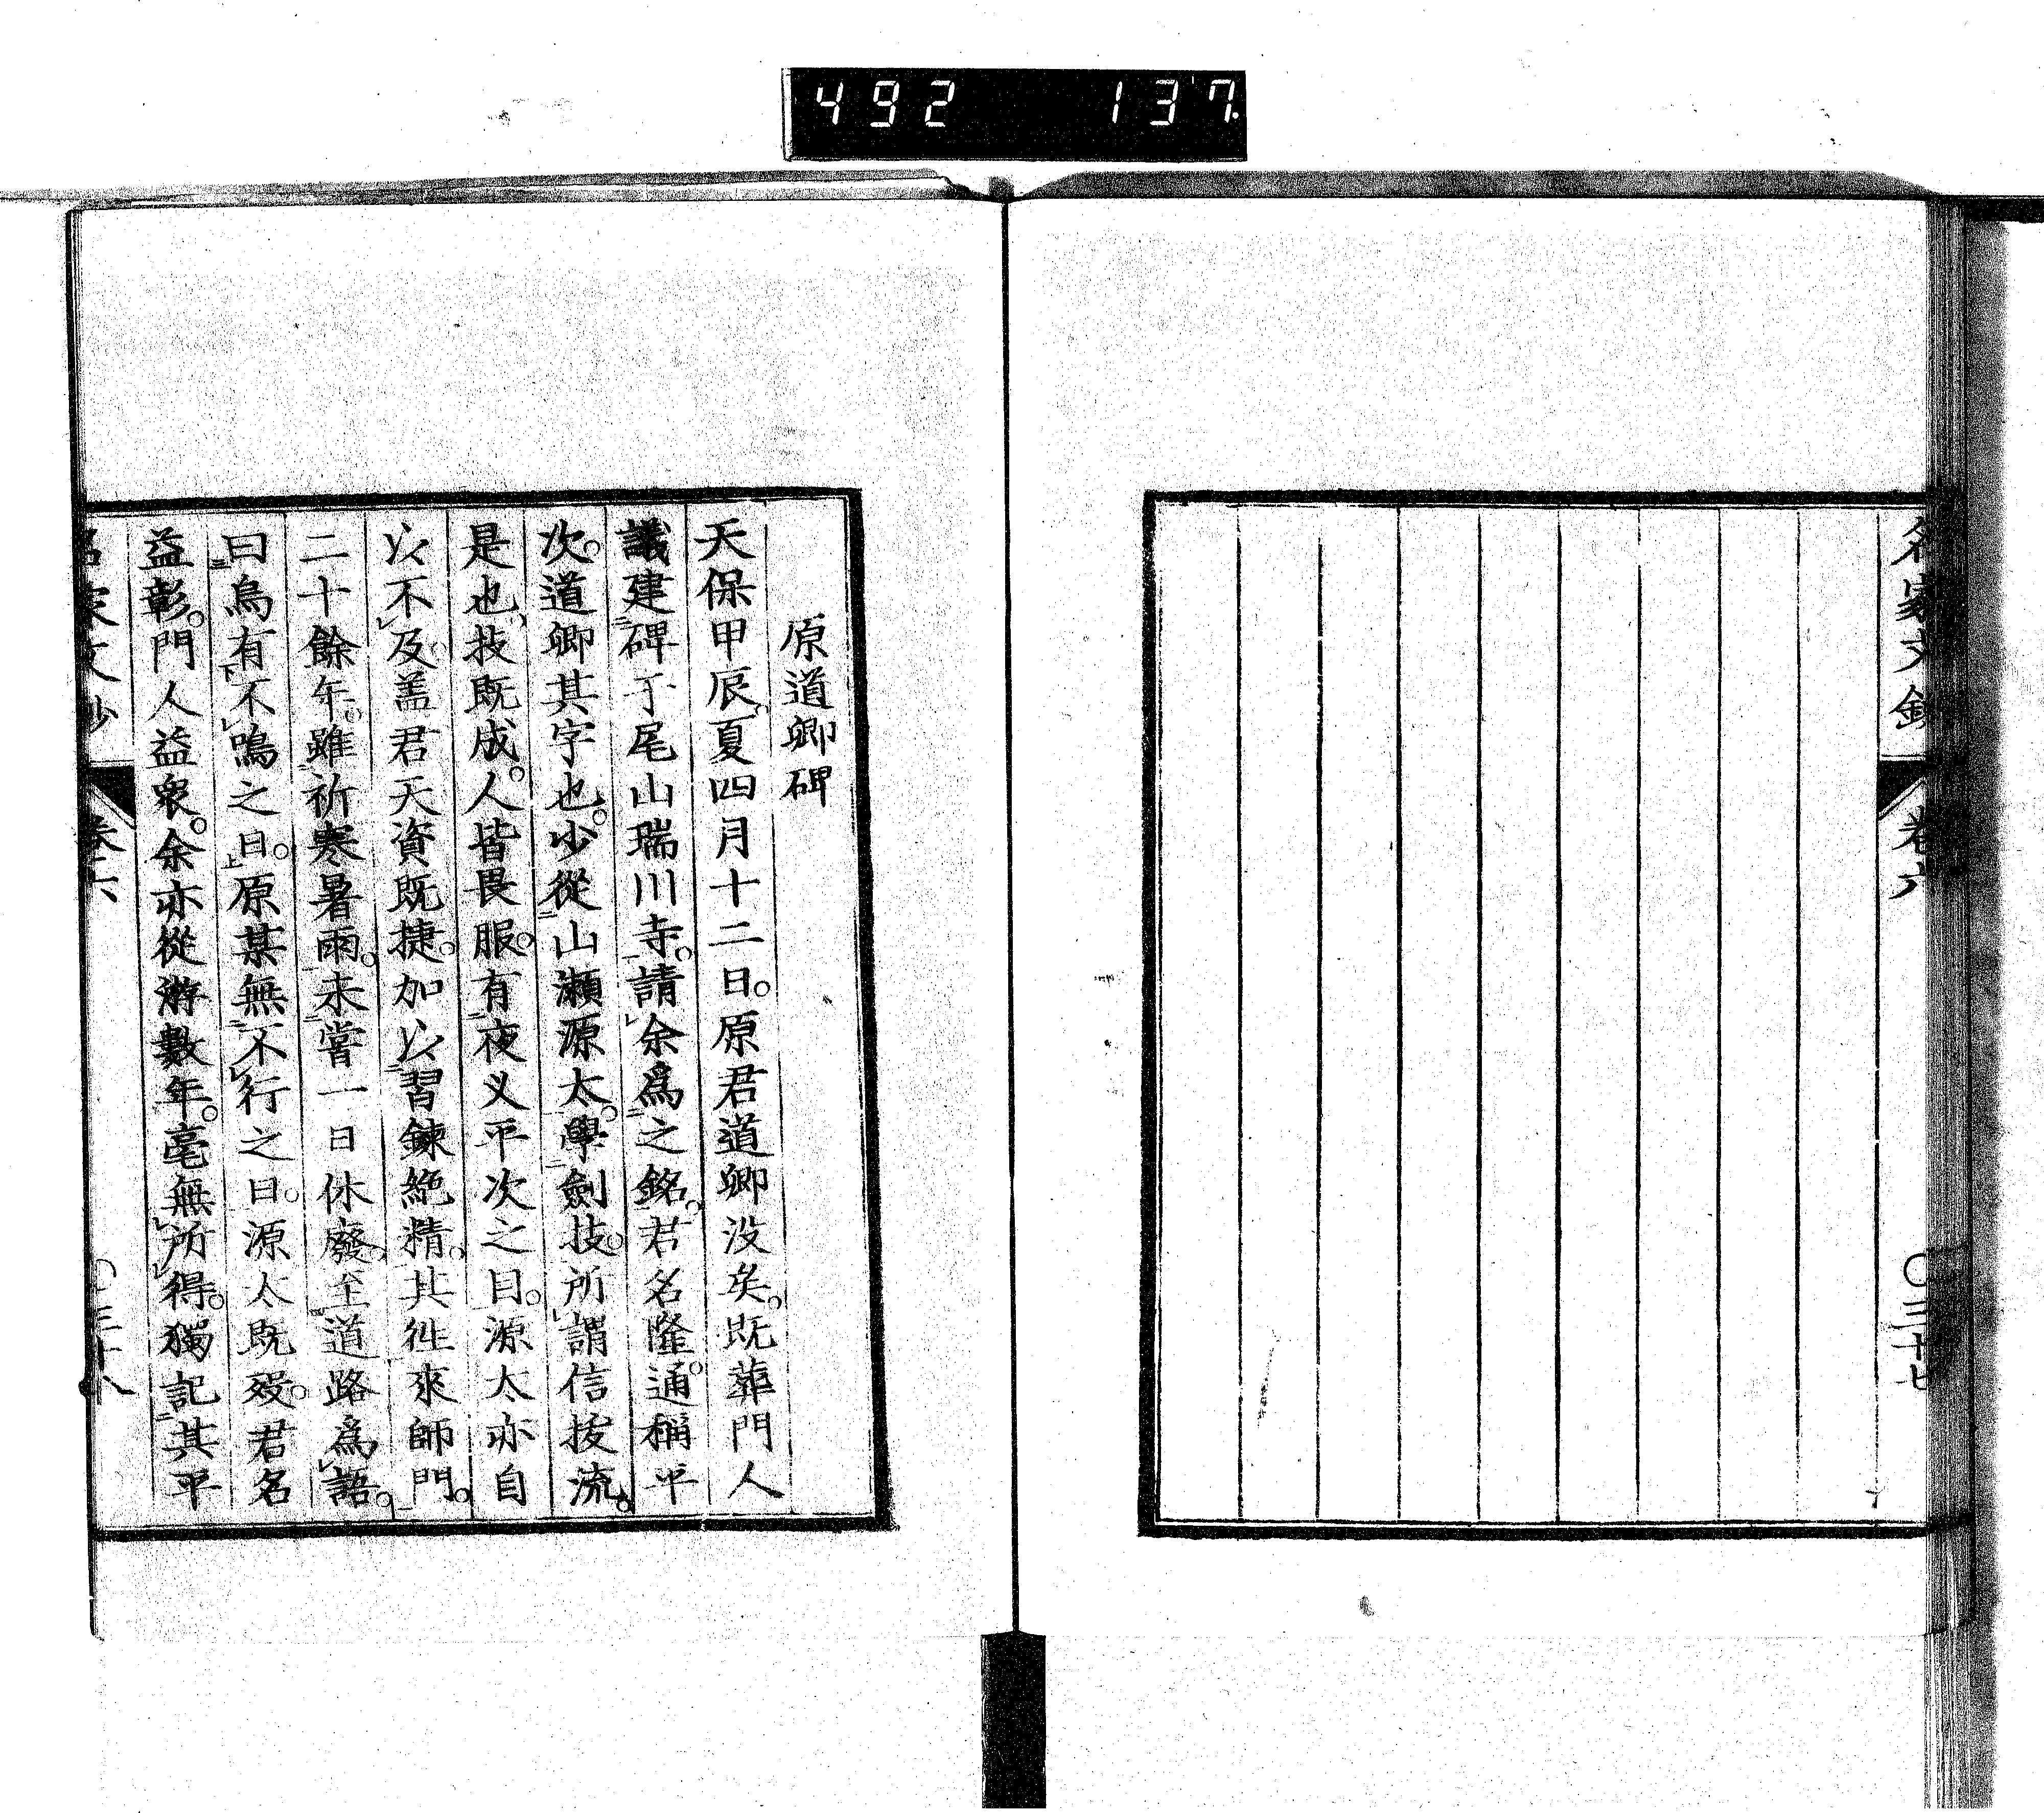 492 137.
名家文鈔 卷六 〇三十七
原道卿碑
天保甲辰夏四月十二日。原君道卿没矣。既葬門人
議建碑于尾山瑞川寺。請余爲之銘。君名隆通。稱平
次。道卿其字也。少從山瀬源太。學劍技。所謂信抜流。
是也、技既成。人皆畏服。有夜叉平次之目。源太亦自
以不及。盖君天資既捷。加以習錬絶精。其徃來師門。
二十餘年。雖祈寒暑雨。未嘗一日休廢。至道路爲語。
曰烏有不鳴之日。原某無不行之日。源太既歿。君名
益彰。門人益衆。余亦從游數年。毫無所得。獨記其平
名家文鈔 卷六 〇三十八